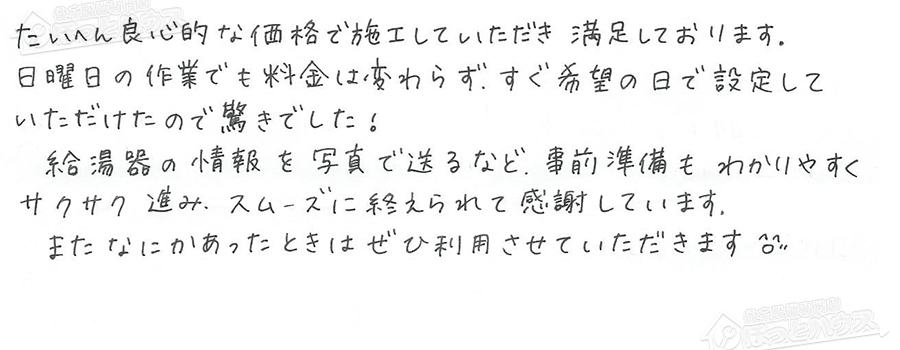 たいへん良心的な価格で施工していただき 満足しております。
日曜日の作業でも料金は変わらず、すぐ希望の日で設定して
いただけたので驚きでした！
給湯器の情報を写真で送るなど、事前準備もわかりやすく
サクサク進み、スムーズに終えられて感謝しています。
またなにかあったときはぜひ利用させていただきます
住宅設備専門店
ほっとハウス